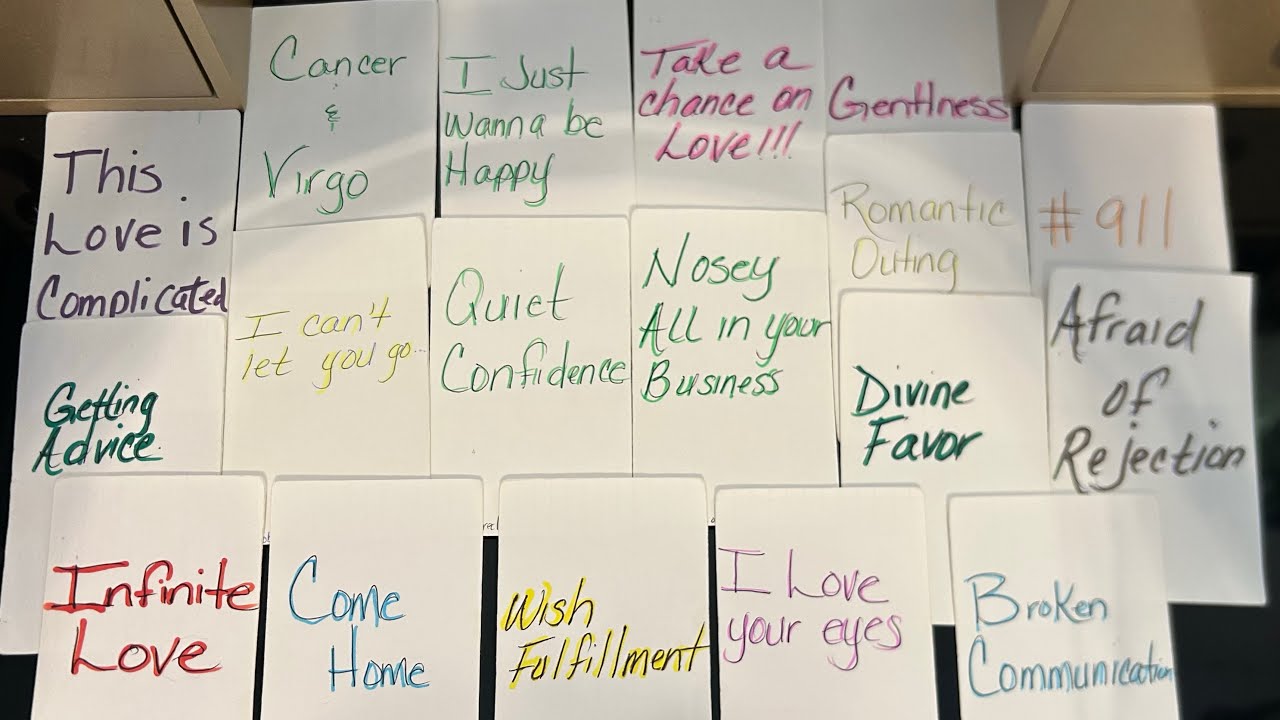 Cancer
&
Virgo
I Just
Wanna be
Happy
Take a
chance on
Love!!!
Gentlness
This
Love is
Complicated
I can't
let you go...
Quiet
Confidence
Nosey
All in your
Business
Romantic
Outing
#911
Getting
Advice
Divine
Favor
Afraid
of
Rejection
Infinite
Love
Come
Home
Wish
Fulfillment
I Love
your eyes
Broken
Communication